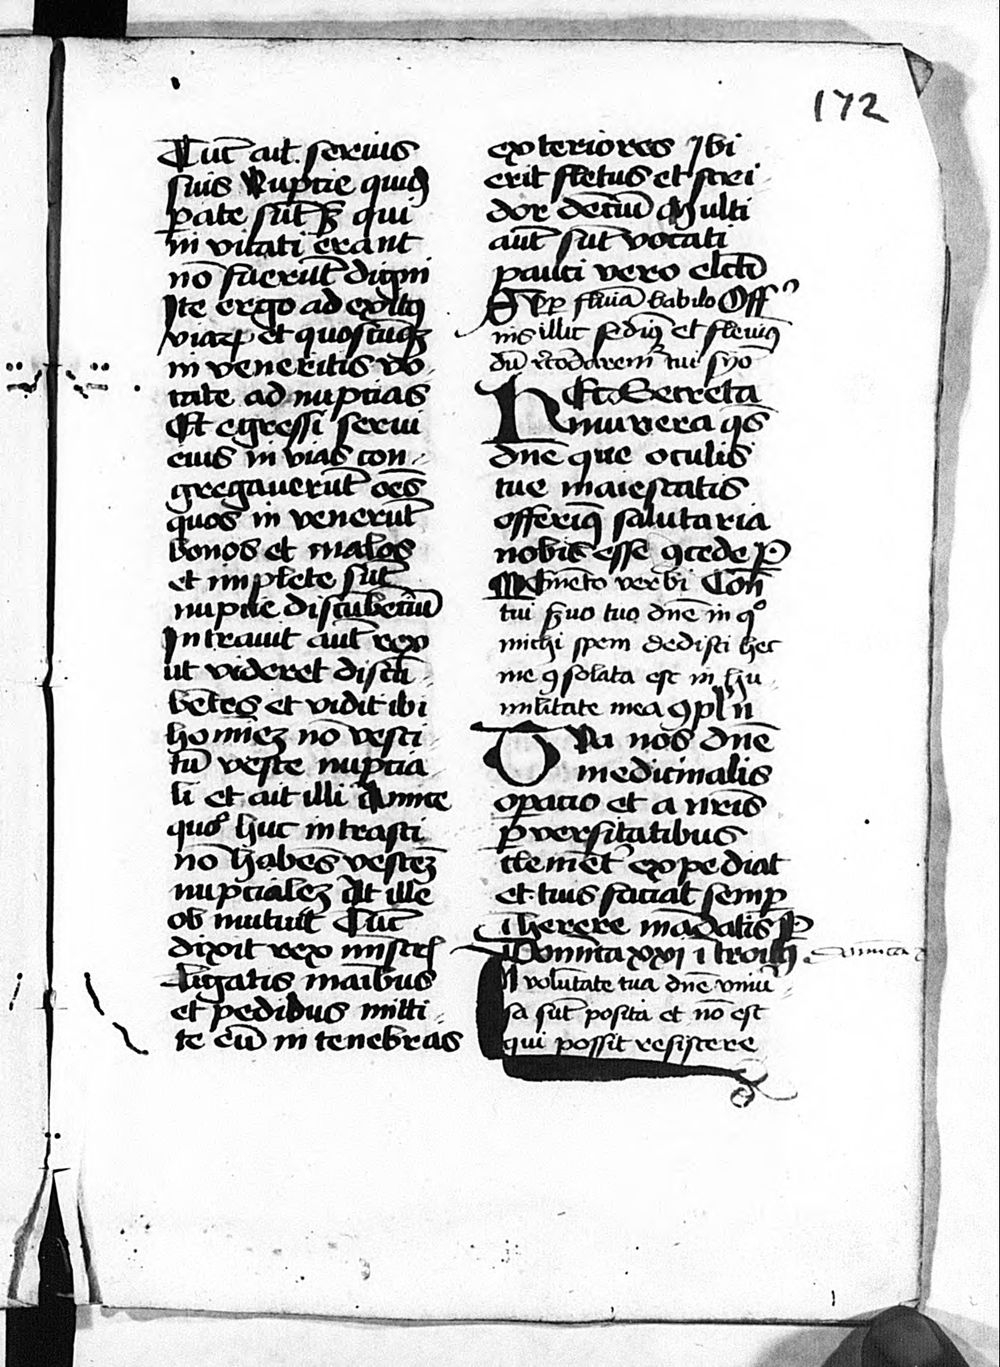 172
Tūc ait seruus
suis Nuptie quidē
parate sūt sꝫ qui
in vitati erant
nō fuerūt digni
Ite ergo ad exitꝰ
viaꝝ et quoscūqꝫ
in veneritis vo
cate ad nuptias
Et egressi serui
eius in vias con
gregauerūt oēs
quos in venerūt
bonos et malos
et implete sūt
nuptie discūbenciū
Intrauit aūt rex
ut videret discū
bētes et vidit ibi
homiēꝫ nō vesti
tū veste nuptia
li et ait illi Amice
quō huc intrasti
nō habēs vestēꝫ
nuptialeꝫ At ille
ob mutuit Tūc
dixit rex ministꝭ
ligatis māibus
et pedibus mitti
te eū in tenebras
exteriores Ibi
erit fletus et stri
dor denciū Multi
aūt sūt vocati
pauci vero elcti
Sup flūia babilo Off
nis illic sedimꝰ et fleuimꝰ
dū rcordaremꝰ tui syō
Hec Secreta
munera qs
dnē que oculis
tue maiestatis
offerimꝰ salutaria
nobis esse ꝯcede P
Memēto verbi Con
tui suo tuo dnē in qͦ
michi spem dedisti hec
me ꝯsolata est in hu
militate mea ꝯpln
Tua nos dnē
medicinalis
opatio et a nris
puersitatibus
clemēt expediat
et tuis faciat semp
iherere mādatis P
Domīca xxi introitꝰ
In volūtate tua dnē vniu
sa sūt posita et nō est
qui possit resistere